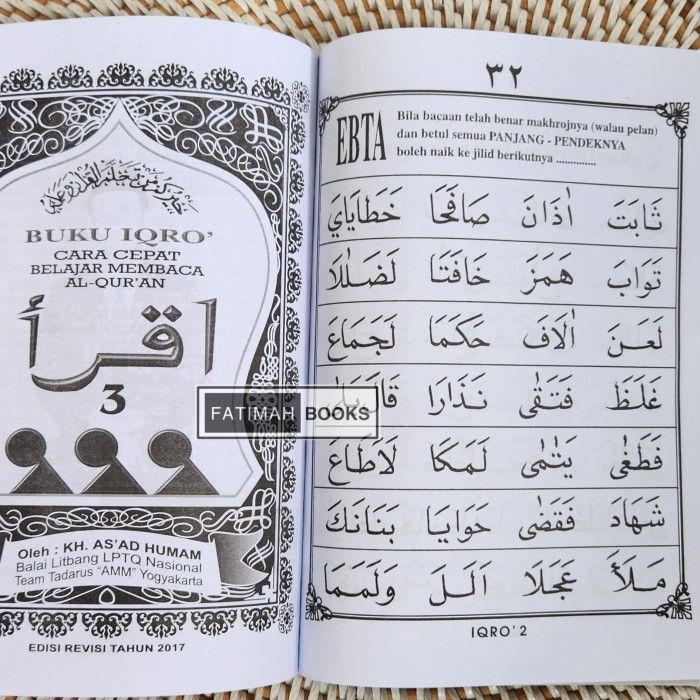 BUKU IQRO'
CARA CEPAT
BELAJAR MEMBACA
AL-QUR'AN
اقرأ
3
Oleh : KH. AS'AD HUMAM
Balai Litbang LPTQ Nasional
Team Tadarus "AMM" Yogyakarta
EDISI REVISI TAHUN 2017
FATIMAH BOOKS
٣٢
EBTA
Bila bacaan telah benar makhrojnya (walau pelan)
dan betul semua PANJANG - PENDEKNYA
boleh naik ke jilid berikutnya ..............
ثَابَتَ اٰذَانَ صَافَحَا خَطَايَايَ
تَوَابَ هَمَزَ خَافَتَا لَضَلٰلَا
لَعَنَ اٰلَافَ حَكَمَا لَجَمَاعَ
غَلَظَ فَتَقٰى نَذَارَا
فَطَغٰى يَتٰمٰى لَمَكَا لَاطَاعَ
شَهَادَ فَقَضٰى حَوَايَا بَنَانَكَ
مَلَأَ عَجَلَا اَلَلَ وَلَمَمَا
IQRO' 2